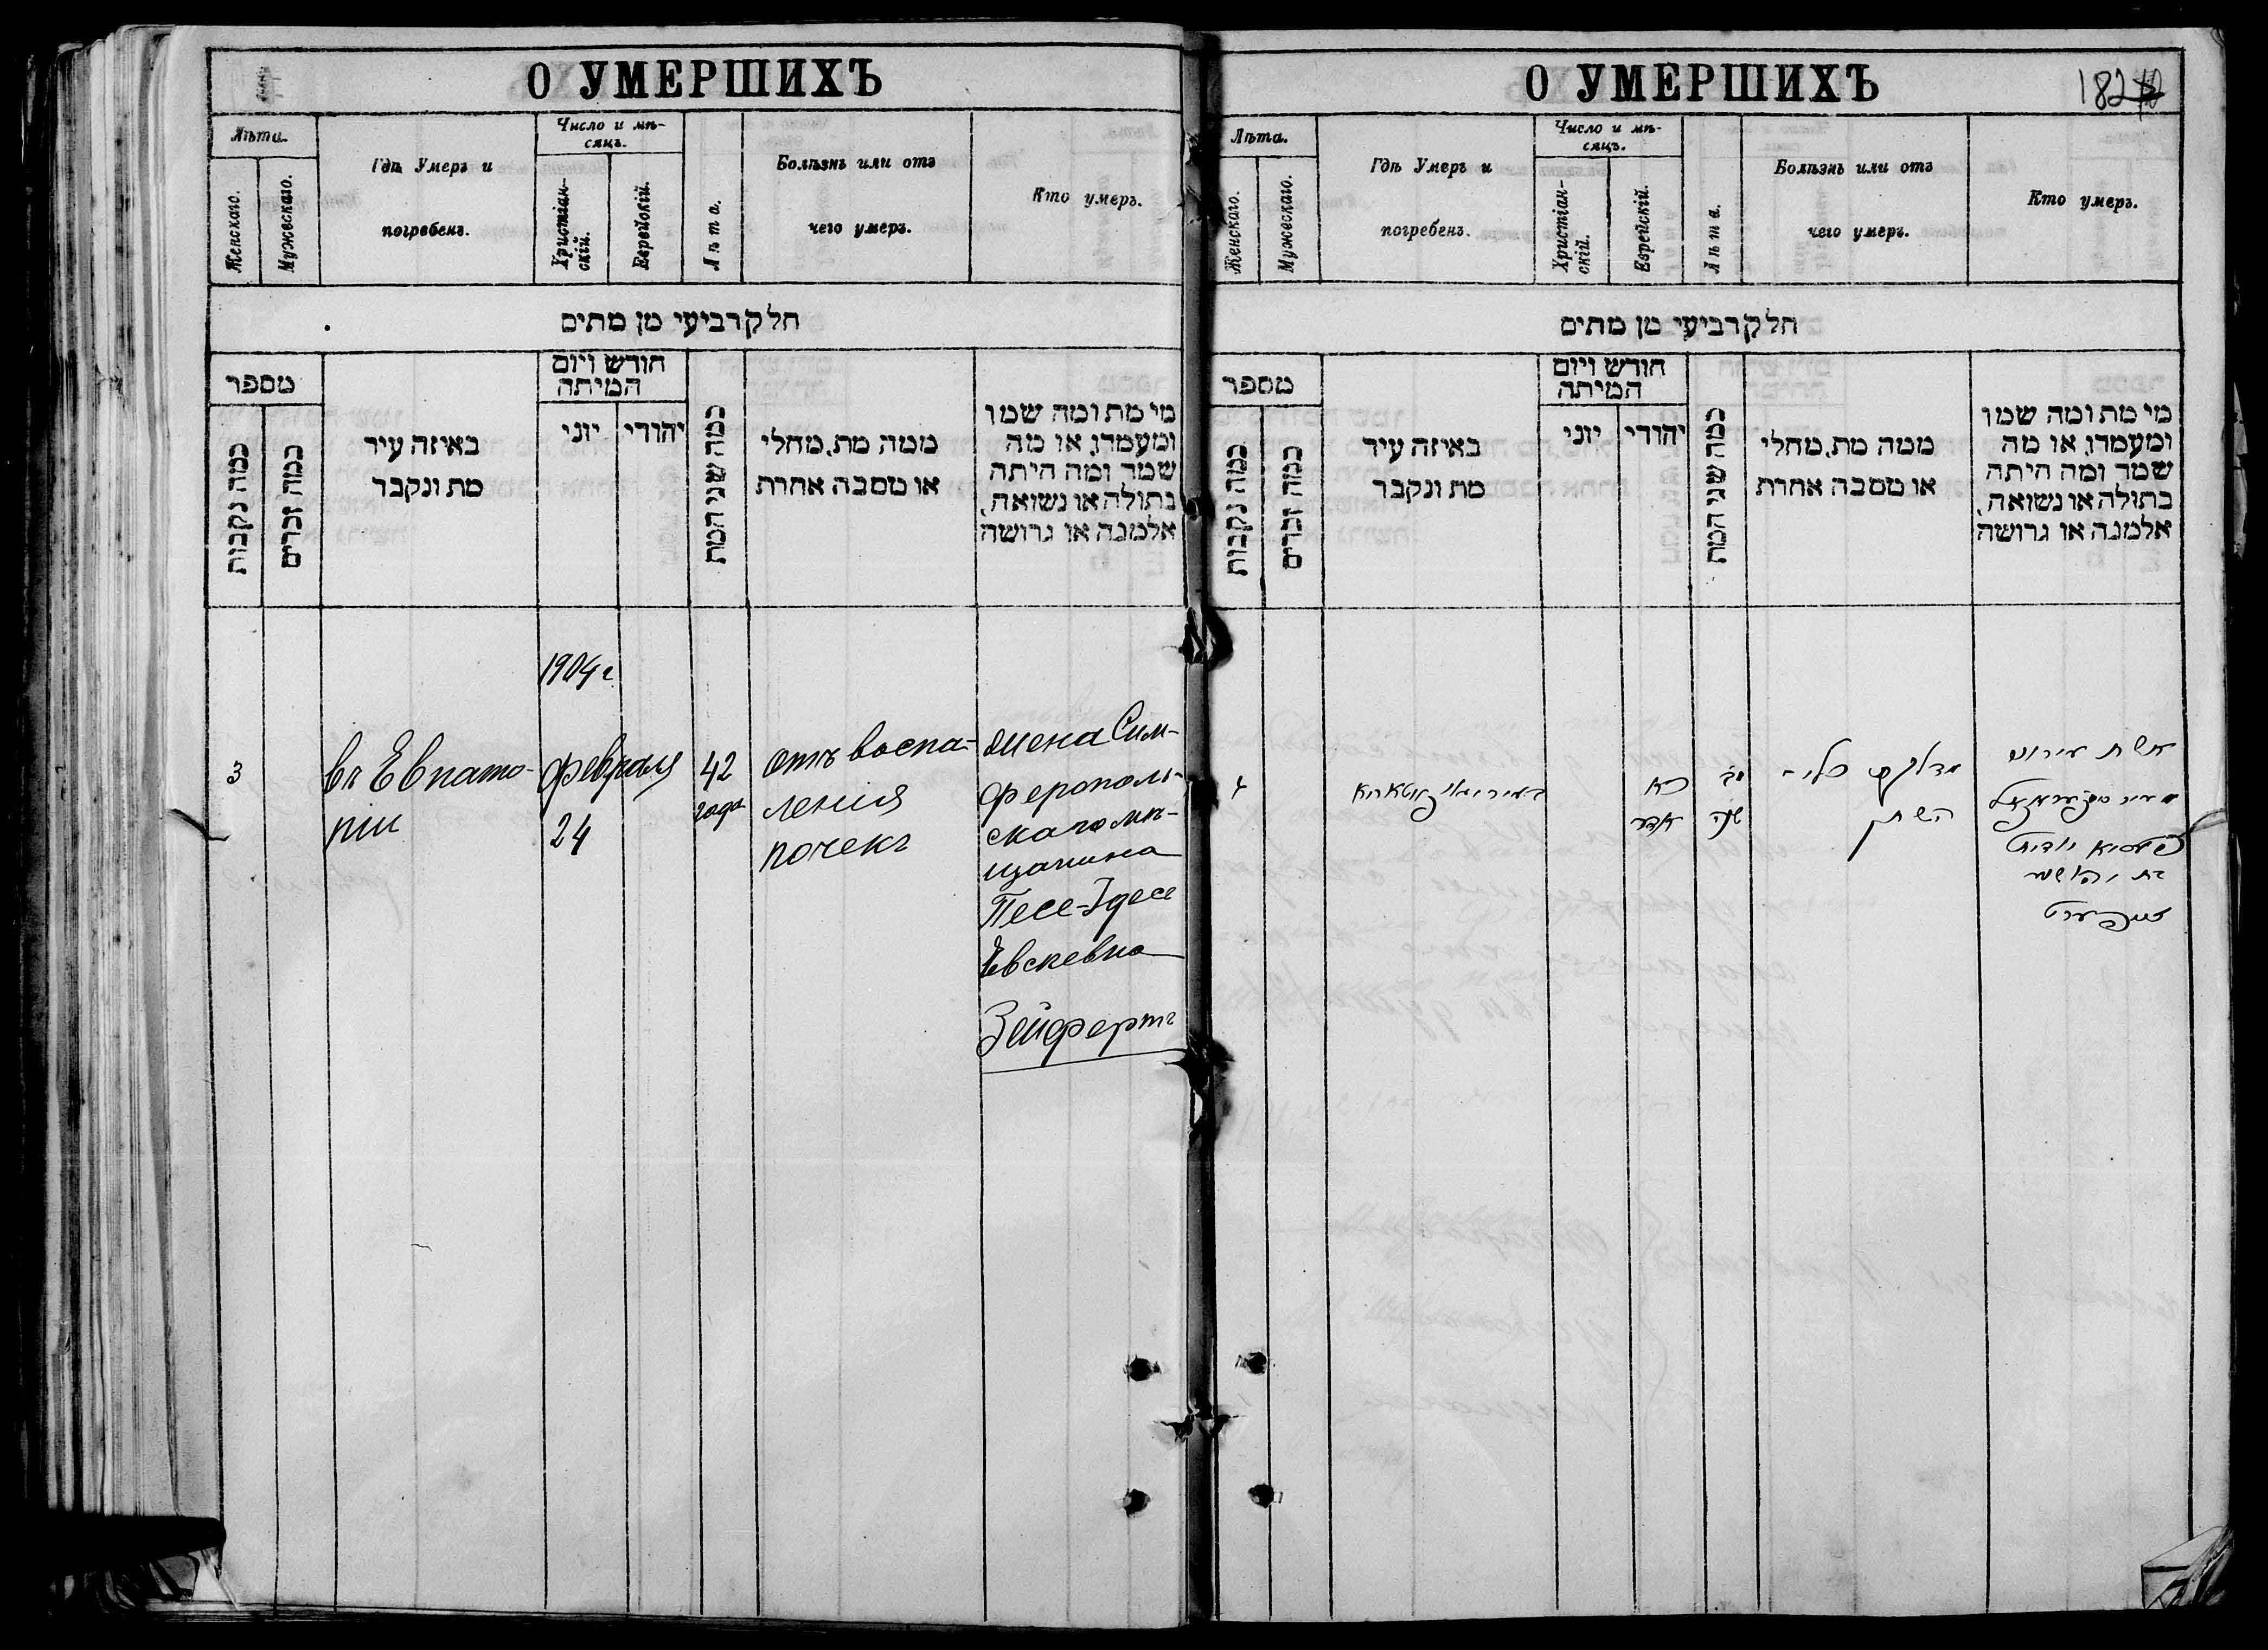 О УМЕРШИХЪ
Лѣта.
Женскаго.
Мужескаго.
Гдѣ Умеръ и
погребенъ.
Число и мѣ-
сяцъ.
Христіан-
скій.
Еврейскій.
Лѣта.
Болѣзнь или отъ
чего умеръ.
Кто умеръ.
חלק רביעי מן מתים
מספר
כמה נקבות
כמה זכרים
באיזה עיר
מת ונקבר
חודש ויום
המיתה
יוני
יהודי
כמה שני המת
ממה מת, מחלי
או מסבה אחרת
מי מת ומה שמו
ומעמדו, או מה
שמה ומה היתה
בתולה או נשואה,
אלמנה או גרושה
1904 г
3
въ Евпато-
ріи
февраля
24
42
года
отъ воспа-
ленія
почекъ
жена Сим-
ферополь-
скаго мѣ-
щанина
Песе-Идесе
Евсеевна
Зейфертъ
О УМЕРШИХЪ
182
Лѣта.
Женскаго.
Мужескаго.
Гдѣ Умеръ и
погребенъ.
Число и мѣ-
сяцъ.
Христіан-
скій.
Еврейскій.
Лѣта.
Болѣзнь или отъ
чего умеръ.
Кто умеръ.
חלק רביעי מן מתים
מספר
כמה נקבות
כמה זכרים
באיזה עיר
מת ונקבר
חודש ויום
המיתה
יוני
יהודי
כמה שני המת
ממה מת, מחלי
או מסבה אחרת
מי מת ומה שמו
ומעמדו, או מה
שמה ומה היתה
בתולה או נשואה,
אלמנה או גרושה
כא
אדר
מב
שנה
מדלקת כלי-
השתן
אשת
בת